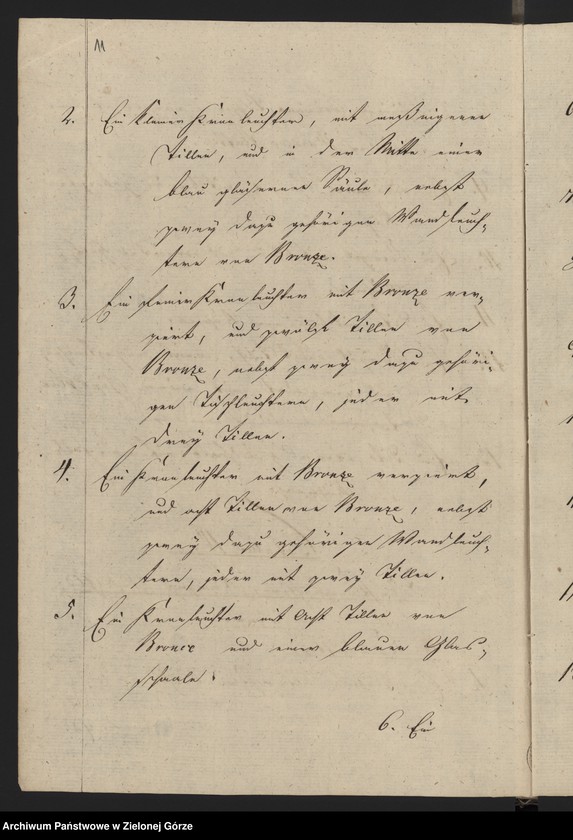 11
2. Ein kleiner Kronleuchter, mit meßingenen
Tillen, und in der Mitte einer
blau gläsernen Säule, nebst
zwey dazu gehörigen Wandleuch-
tern von Bronze.
3. Ein Kronleuchter mit Bronze ver-
ziert, und zwölf Tillen von
Bronze, nebst zwey dazu gehöri-
gen Tischleuchtern, jeder mit
drey Tillen.
4. Ein Kronleuchter mit Bronze verziert,
und acht Tillen von Bronze, nebst
zwey dazu gehörigen Wandleuch-
tern, jeder mit zwey Tillen.
5. Ein Kronleuchter mit Acht Tillen von
Bronce und einer blauen Glas-
schaale.
6. Ein
Archiwum Państwowe w Zielonej Górze